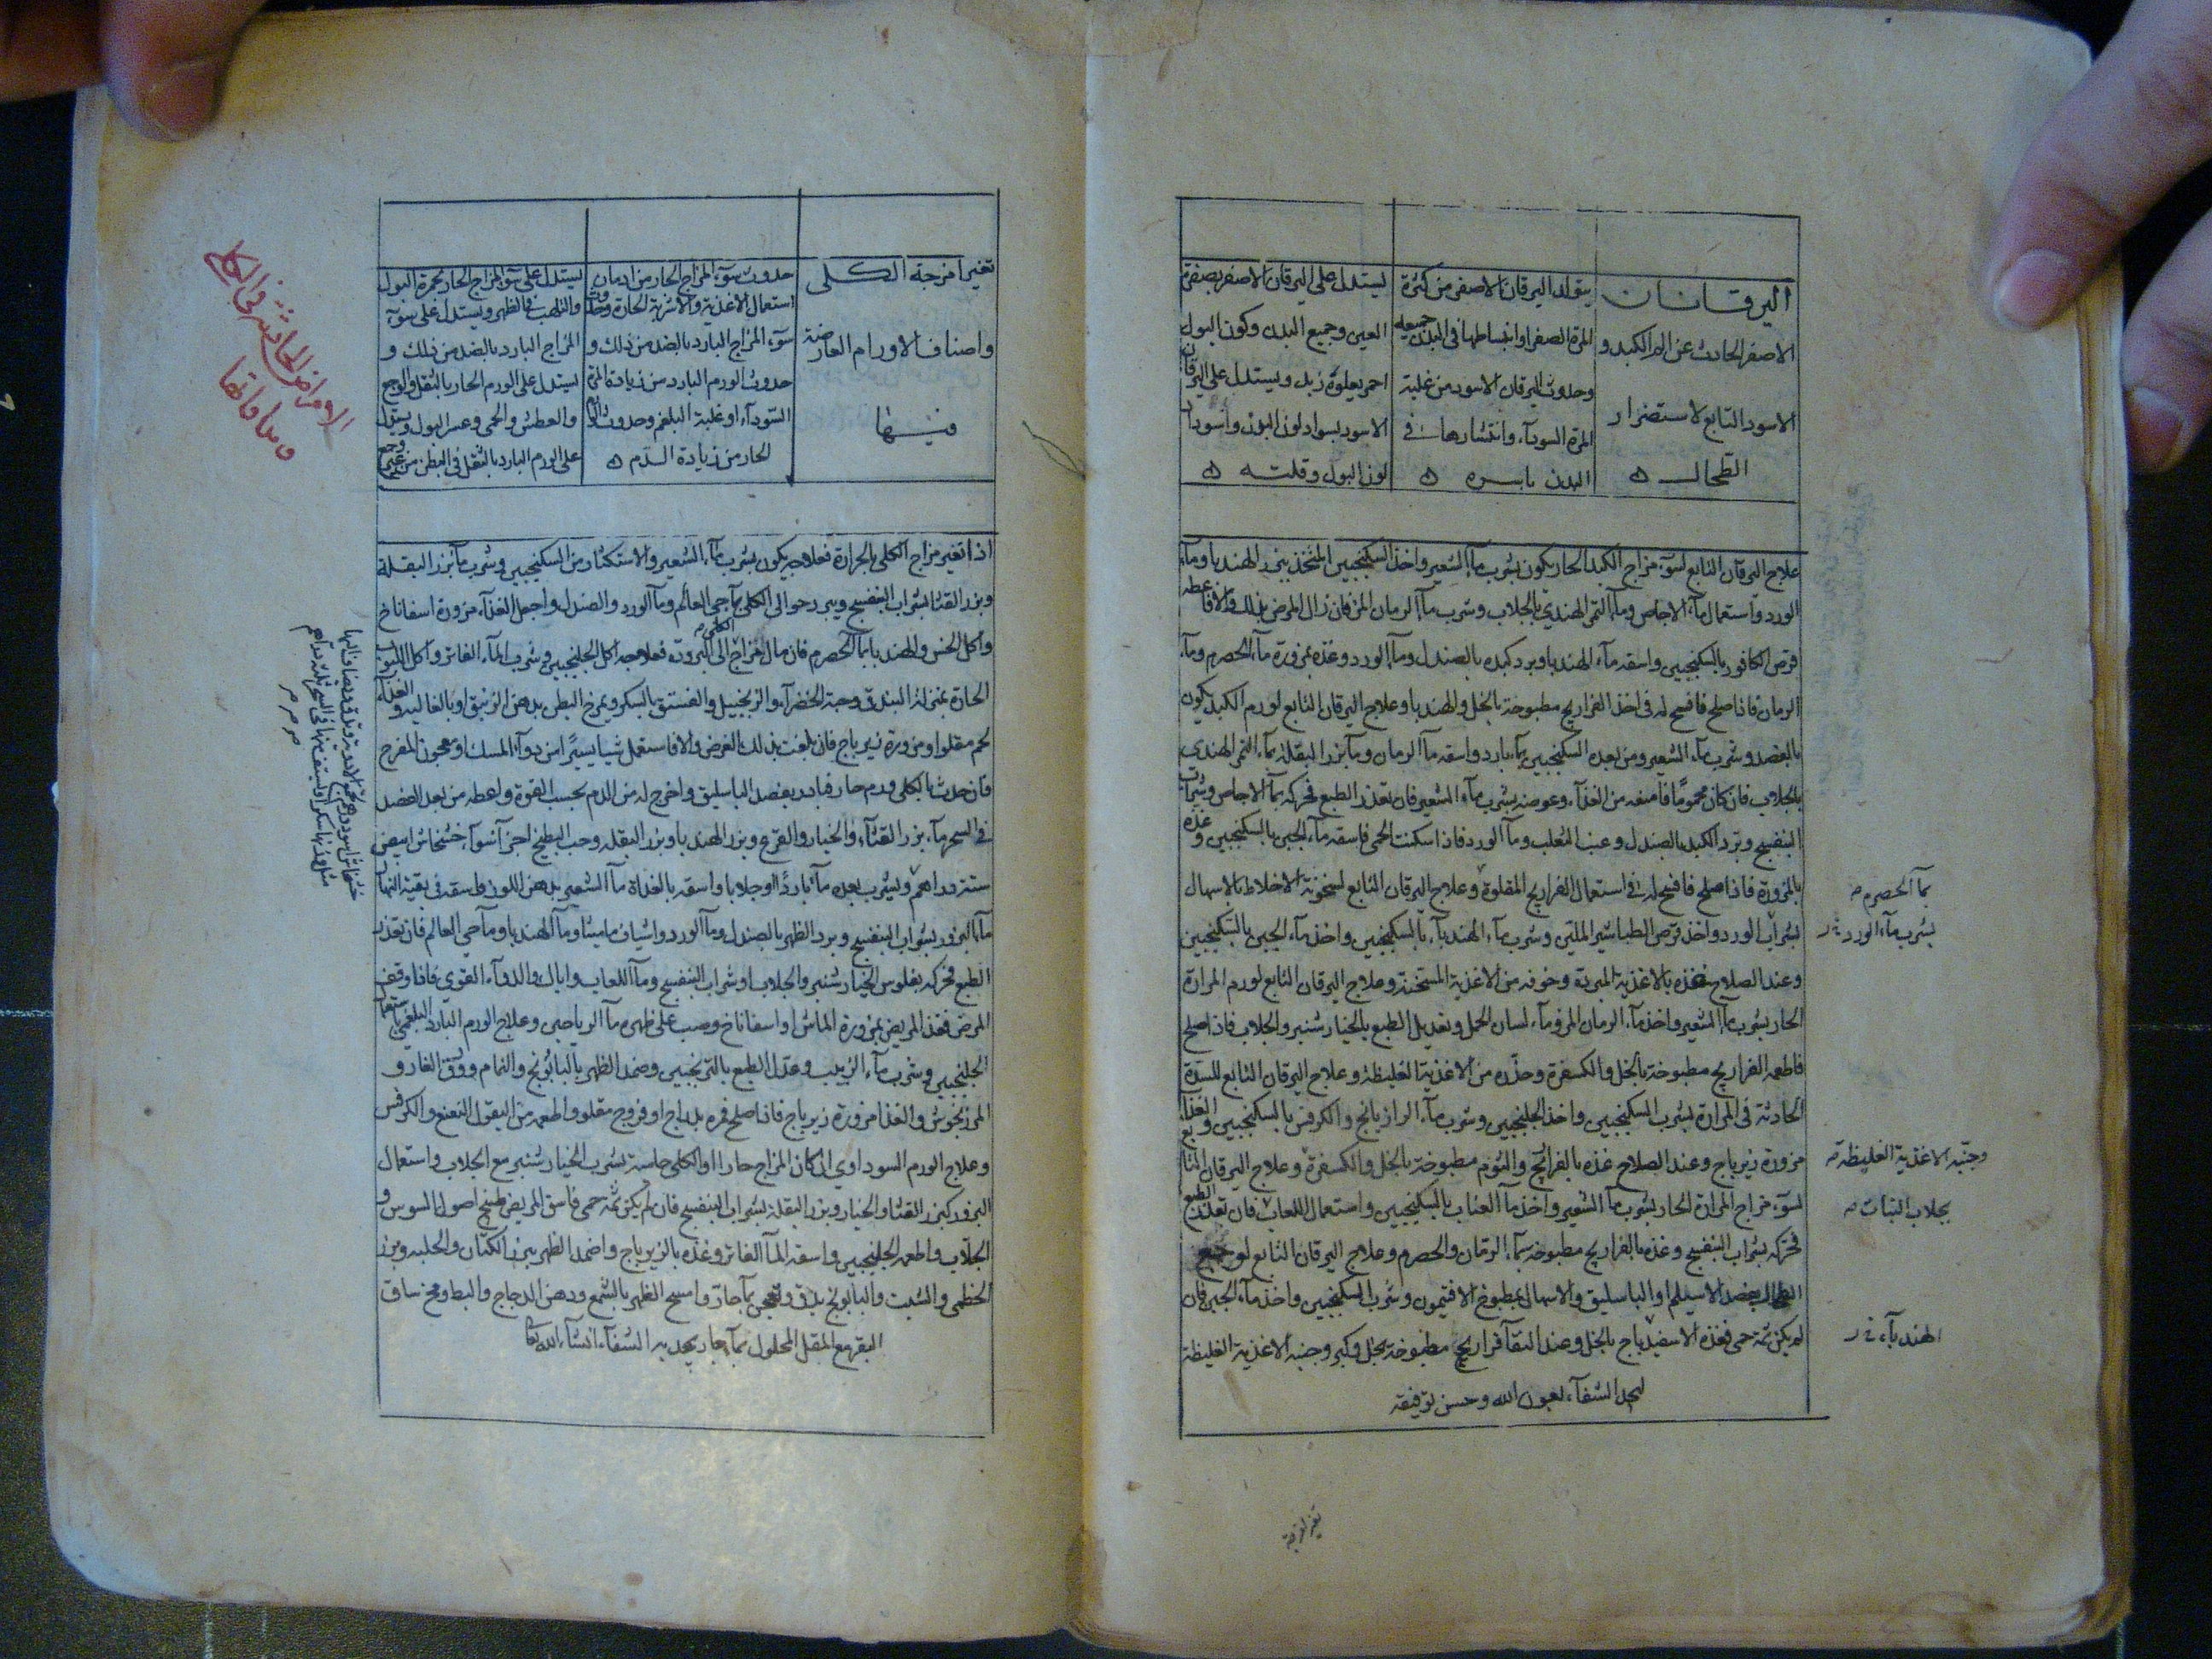 اليرقانان
الاصفر الحادث عن الم الكبد و
الاسود التابع لاستضرار
الطحال ه
يتولد اليرقان الاصفر من كثرة
المرة الصفراء وانبساطها في البدن جميعه
وحدوث اليرقان الاسود من غلبة
المرة السودآء وانتشارها في
البدن باسره ه
يستدل على اليرقان الاصفر بصفرة
العين وجميع البدن وكون البول
احمر يعلوه زبد ويستدل على اليرقان
الاسود بسواد لون البدن واسوداد
لون البول وقلته ه
علاج اليرقان التابع لسوء مزاج الكبد الحار يكون بشرب مآء الشعير واخذ السكنجبين المتخذ ببزر الهندبا ومآء
الورد واستعمال مآء الاجاص ومآء التمر الهندي بالجلاب وشرب مآء الرمان المز فان زال المرض بذلك والا فاعطه
قرص الكافور بالسكنجبين واسقه مآء الهندبا وبرد كبده بالصندل ومآء الورد وغذه بمزورة مآء الحصرم ومآء
الرمان فاذا صلح فافسح له في اخذ الفراريج مطبوخة بالخل والهندبا وعلاج اليرقان التابع لورم الكبد يكون
بالفصد وشرب مآء الشعير ومن بعده السكنجبين بمآء بارد واسقه مآء الرمان ومآء بزر البقلة بمآء التمر الهندي
بالجلاب فان كان محموما فامنعه من الغذآء وعوضه بشرب مآء الشعير فان تعذر الطبع فحركه بمآء الاجاص وشراب
البنفسج وبرد الكبد بالصندل وعنب الثعلب ومآء الورد فاذا سكنت الحمى فاسقه مآء الجبن بالسكنجبين وغذه
بالمزورة فاذا صلح فافسح له في استعمال الفراريج المقلوة وعلاج اليرقان التابع لسخونة الاخلاط بالاسهال
بشراب الورد واخذ قرص الطباشير الملين وشرب مآء الهندبآء بالسكنجبين واخذ مآء الجبن بالسكنجبين
وعند الصلاح فغذه بالاغذية المبردة وخوفه من الاغذية المسخنة وعلاج اليرقان التابع لورم المرارة
الحار بشرب مآء الشعير واخذ مآء الرمان المز ومآء لسان الحمل وتعديل الطبع بالخيار شنبر والجلاب فاذا صلح
فاطعمه الفراريج مطبوخة بالخل والكسفرة وحذره من الاغذية الغليظة وعلاج اليرقان التابع للسدة
الحادثة في المرارة بشرب السكنجبين واخذ الجلنجبين وشرب مآء الرازيانج والكرفس بالسكنجبين والغذآء
مزورة زيرباج وعند الصلاح غذه بالفراريج والثوم مطبوخة بالخل والكسفرة وعلاج اليرقان التابع
لسوء مزاج المرارة الحار بشرب مآء الشعير واخذ مآء العناب بالسكنجبين واستعمال اللعاب فان تعذر الطبع
فحركه بشراب البنفسج وغذه بالفراريج مطبوخة بمآء الرمان والحصرم وعلاج اليرقان التابع لوجع
الطحال بفصد الاسيلم او الباسليق والاسهال بمطبوخ الافتيمون وشرب السكنجبين واخذ مآء الجبن فان
لم يكن ثمة حمى فغذه الاسفيذباج بالخل وعند النقآء فراريج مطبوخة بخل وكبر وجنبه الاغذية الغليظة
يجد الشفآء بعون الله وحسن توفيقه
بمآء الحصرم
بشرب مآء الورد
وجنبه الاغذية الغليظة
بجلاب النبات
الهندبآء
تغير امزجة
تغير امزجة الكلى
واصناف الاورام العارضة
فيها
حدوث سوء المزاج الحار من ادمان
استعمال الاغذية والاشربة الحارة وحدوث
سوء المزاج البارد بالضد من ذلك و
حدوث الورم البارد من زيادة المرة
السودآء او غلبة البلغم وحدوث الورم
الحار من زيادة الدم ه
يستدل على سوء المزاج الحار بحمرة البول
والتلهب في الظهر ويستدل على سوء
المزاج البارد بالضد من ذلك و
يستدل على الورم الحار بالثقل والوجع
والعطش والحمى وعسر البول ويستدل
على الورم البارد بالثقل في البطن من غير وجع
الامراض الحادثة في الكلى
ومداواتها
اذا تغير مزاج الكلى بالحرارة فعلاجه يكون بشرب مآء الشعير والاستكثار من السكنجبين وشرب مآء بزر البقلة
وبزر القثا بشراب البنفسج ويبرد حوالي الكلى بمآء حي العالم ومآء الورد والصندل واجعل الغذآء مزورة اسفاناخ
واكل الخس والهندبا بمآء الحصرم فان مال مزاج الكلى الى البرودة فعلاجه اكل الجلنجبين وشرب المآء الفاتر واكل اللبوب
الحارة بمنزلة البندق وحبة الخضرآء والزنجبيل والفستق بالسكر ويمرخ البطن بدهن الزنبق او بالغاليه والغذآء
لحم مقلوا ومزورة زيرباج فان بلغت بذلك الغرض والا فاستعمل شيا يسيرا من دوآء المسك او معجون المفرح
فان حدث بالكلى ورم حار فبادر بفصد الباسليق واخرج له من الدم بحسب القوة واعطه من بعد الفصد
في السحر مآء بزر القثآء والخيار والقرع وبزر الهندبا وبزر البقله وحب البطيخ اجزآء سوآء خشخاش ابيض
ستة دراهم ويشرب بعده مآء باردا وجلابا واسقه بالغداة مآء الشعير بدهن اللوز واسقه في بقية النهار
مآء البزور بشراب البنفسج وبرد الظهر بالصندل ومآء الورد واشياف ماميثا ومآء الهندبا ومآء حي العالم فان تعذر
الطبع فحركه بفلوس الخيار شنبر والجلاب او شراب البنفسج ومآء اللعاب واياك والدوآء القوي فاذا وقف
المرض فغذ المريض بمزورة الماش او اسفاناخ وصب على ظهره مآء الرياحين وعلاج الورم البارد البلغمي باستعمال
الجلنجبين وشرب مآء الزبيب وعدل الطبع بالترنجبين وضمد الظهر بالبابونج والنمام وورق الغار و
المرزنجوش والغذا مزورة زيرباج فاذا صلح فمره بدراج او فروج مقلو واطعمه من البقول النعنع والكرفس
وعلاج الورم السوداوي ان كان المزاج حارا او الكلى جاسية بشرب الخيار شنبر مع الجلاب واستعمال
البزور كبزر القثا والخيار وبزر البقلة بشراب البنفسج فان لم يكن ثمة حمى فاسق المريض طبيخ اصول السوس و
الجلاب واطعمه الجلنجبين واسقه المآء الفاتر وغذه بالزيرباج واضمد الظهر ببزر الكتان والحلبه وبزر
الخطمى والشبت والبابونج يدق ويعجن بمآء حار وامسح الظهر بالشمع ودهن الدجاج والبط ومخ ساق
البقر مع المقل المحلول بمآء حار يجد به الشفآء انشآء الله تعا